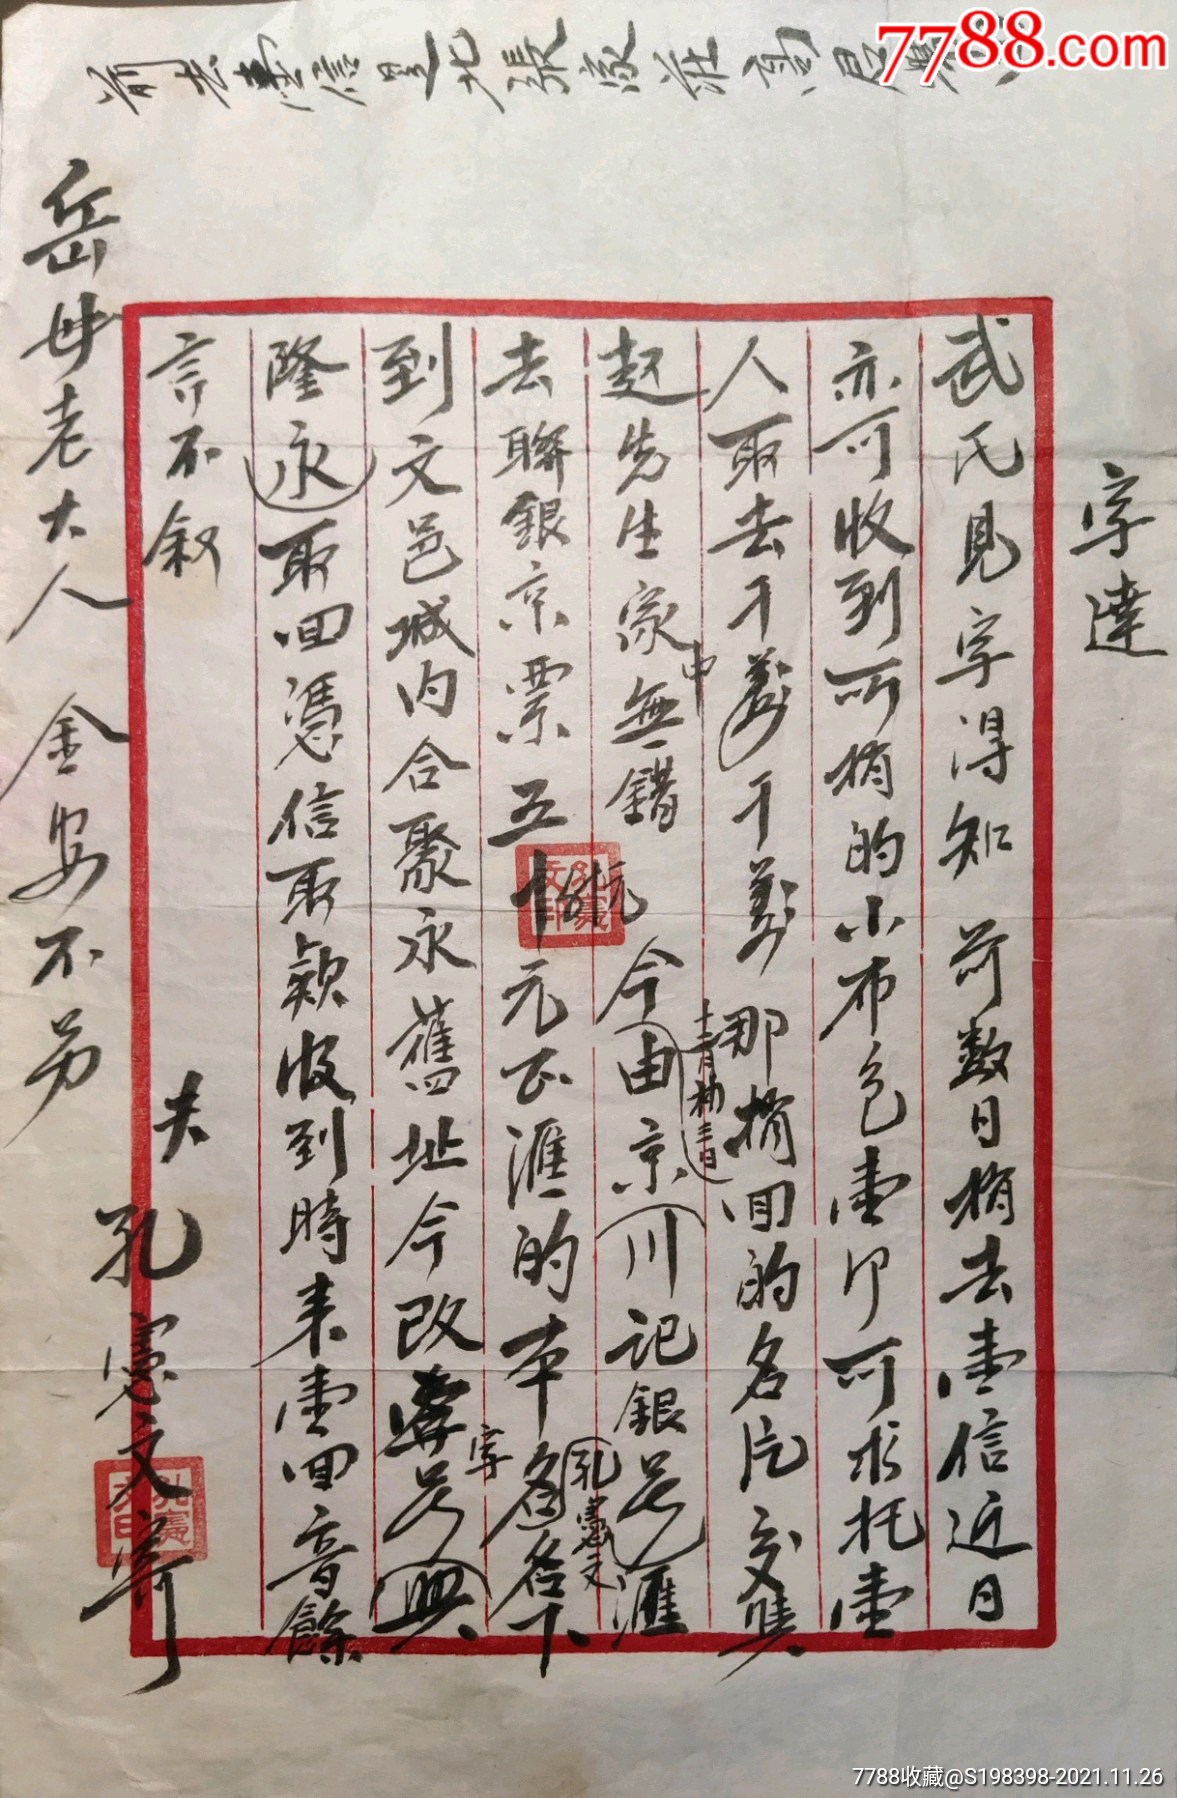 字達
武氏見字得知 前数日捎去壹信近日
亦可收到所捎的小布包壹个可求托壹
人取去千萬千萬那捎回的名片交與
趙先生家中無錯 今由京川記銀号滙
十二月初三日
去聯銀京票五十元正滙的本名名下
孔憲文
到文邑城内合聚永舊址今改字号興
隆永取回憑信取款收到時来壹回音餘
言不叙
夫 孔憲文寄
岳母老大人 金安不另
7788.com
7788收藏@S198398-2021.11.26